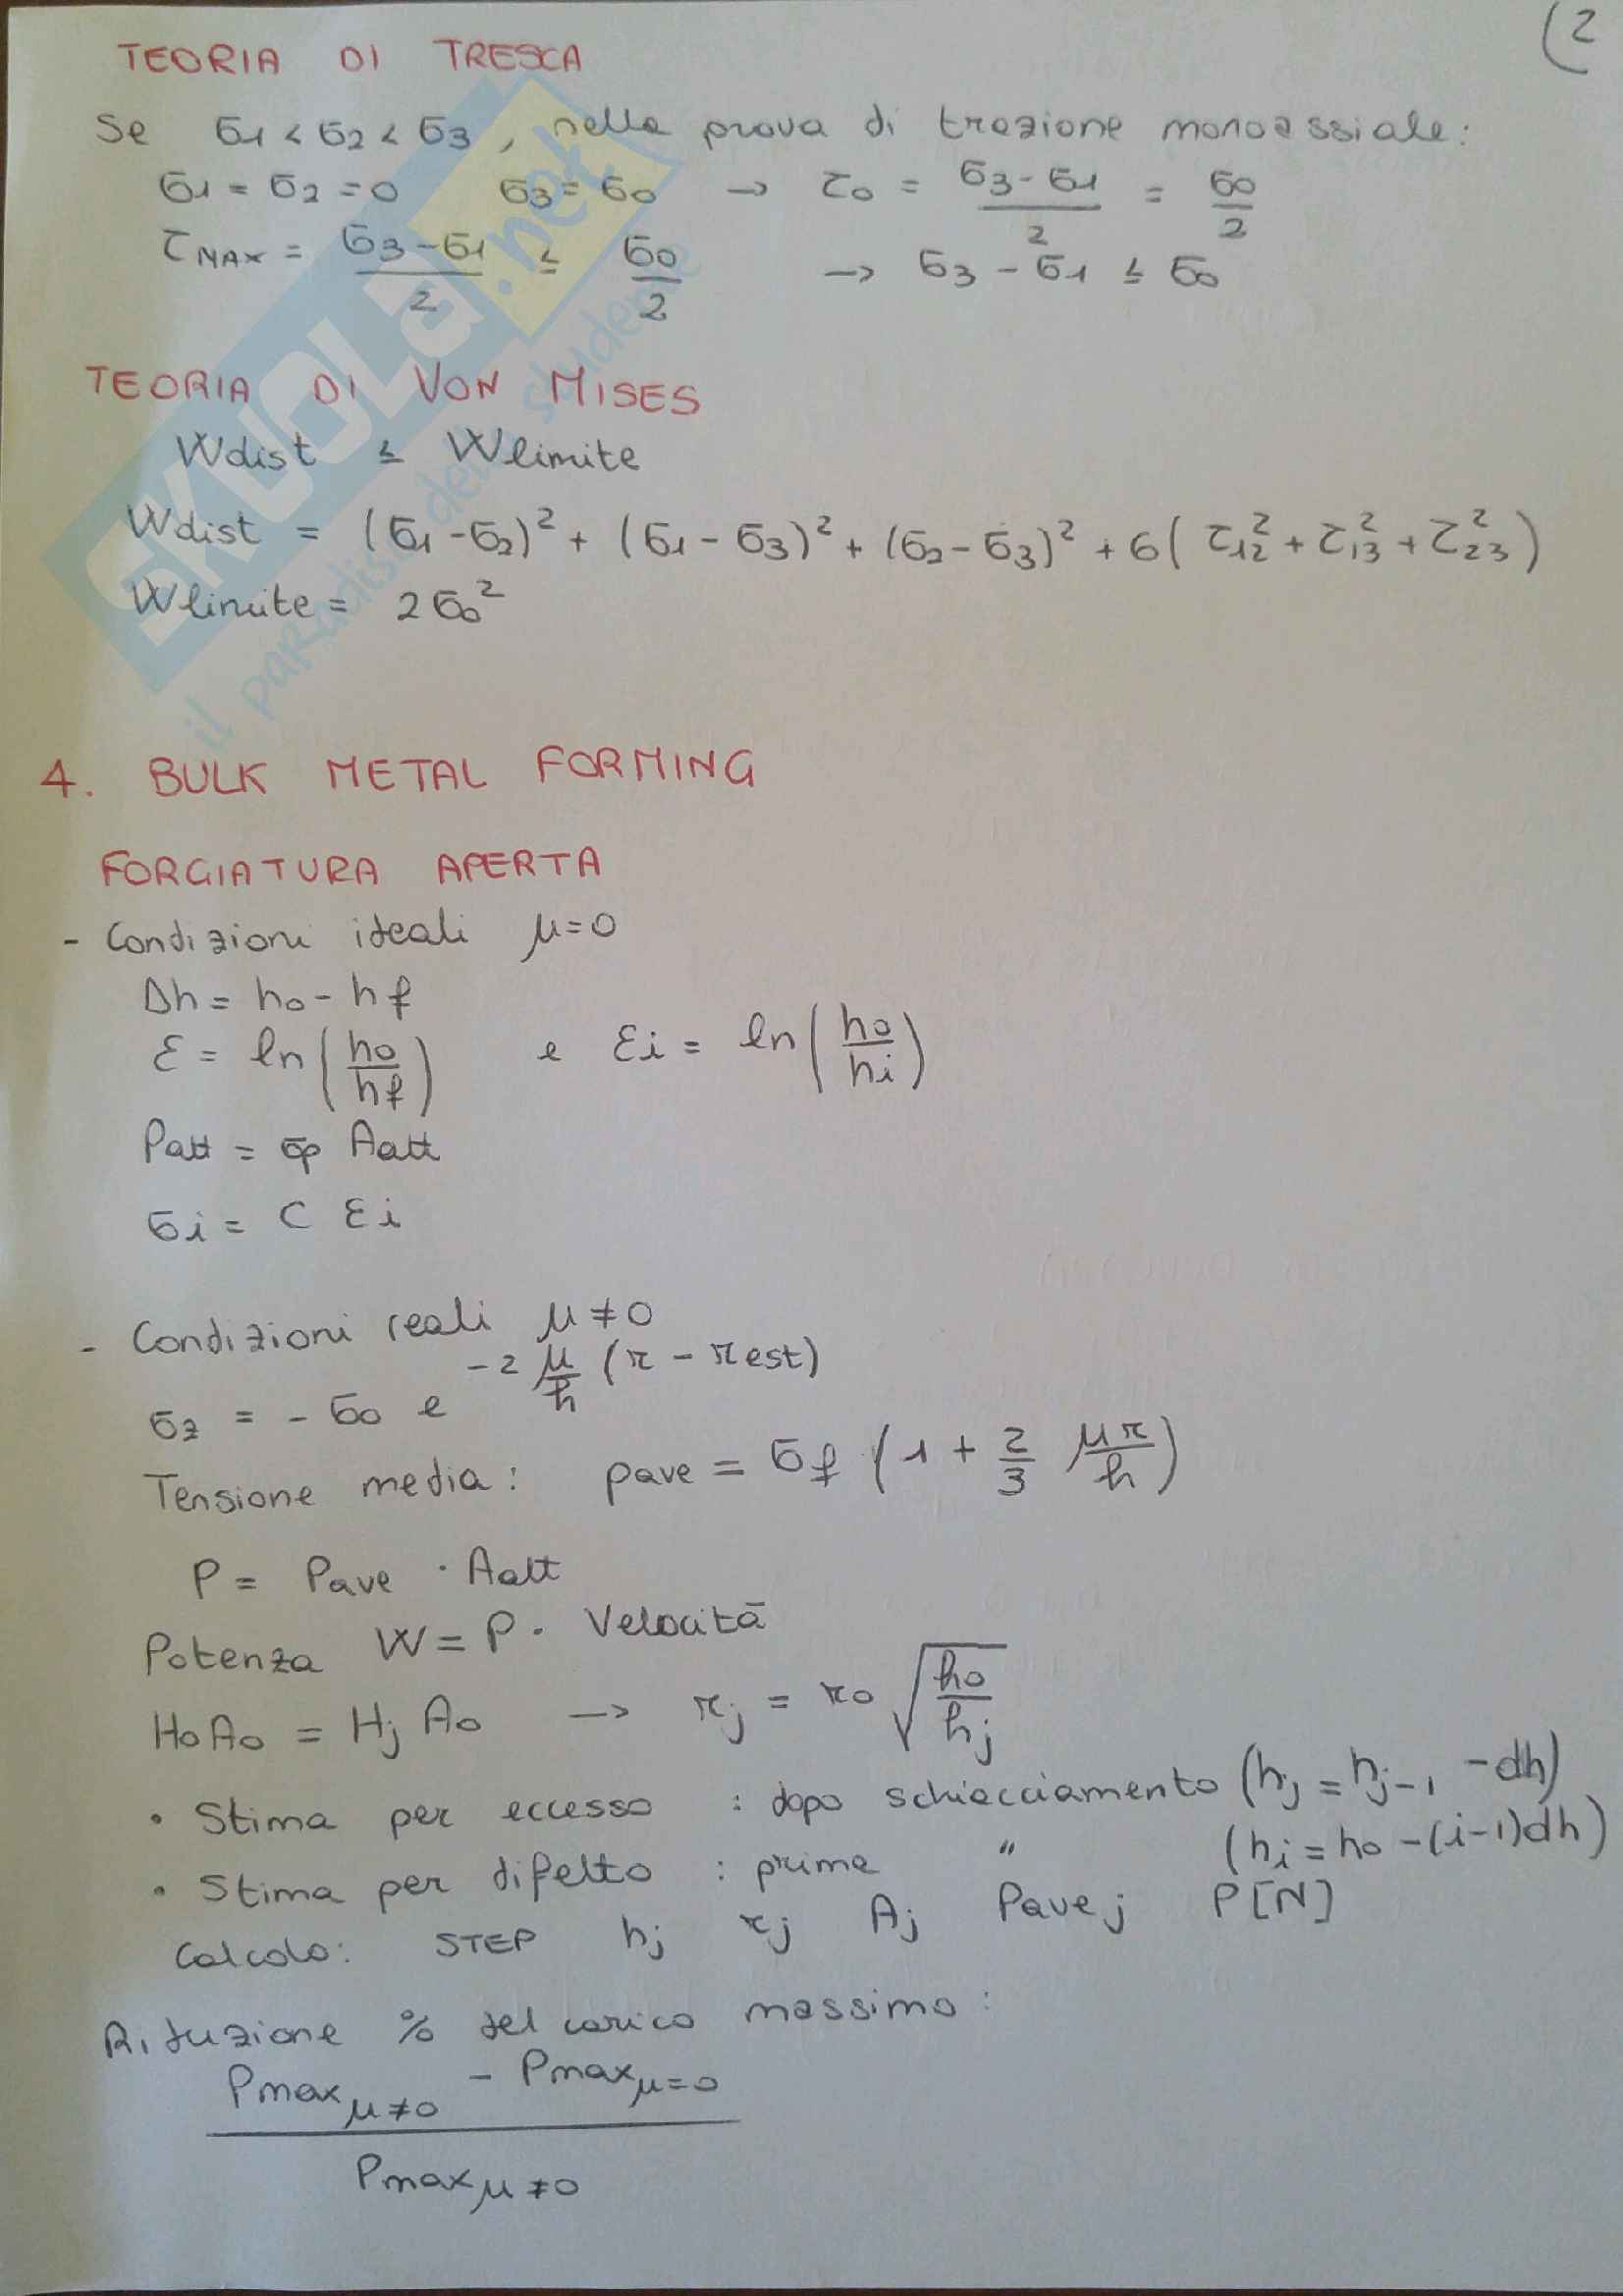 (2
TEORIA DI TRESCA
Se σ1 < σ2 < σ3, nella prova di trazione monoassiale:
σ1 = σ2 = 0 σ3 = σ0 → τ0 = (σ3 - σ1)/2 = σ0/2
τMAX = (σ3 - σ1)/2 ≤ σ0/2 → σ3 - σ1 ≤ σ0
TEORIA DI VON MISES
Wdist ≤ Wlimite
Wdist = (σ1 - σ2)² + (σ1 - σ3)² + (σ2 - σ3)² + 6(τ12² + τ13² + τ23²)
Wlimite = 2σ0²
SKUOLA.net
il paradiso dello studente
4. BULK METAL FORMING
FORGIATURA APERTA
- Condizioni ideali μ=0
Δh = h0 - hf
ε = ln(h0/hf) e εi = ln(h0/hi)
Patt = σp Aatt
σi = C εi
- Condizioni reali μ≠0
σz = - σ0 e^(-2 μ/h (r - rest))
Tensione media: pave = σf (1 + 2/3 μr/h)
P = Pave · Aatt
Potenza W = P · Velocità
H0A0 = Hj A0 → rj = r0 √(h0/hj)
• Stima per eccesso : dopo schiacciamento (hj = hj-1 - dh)
• Stima per difetto : prima " (hi = h0 - (i-1)dh)
Calcolo: STEP hj rj Aj Pavej P[N]
Riduzione % del carico massimo:
(Pmax μ≠0 - Pmax μ=0)/Pmax μ≠0